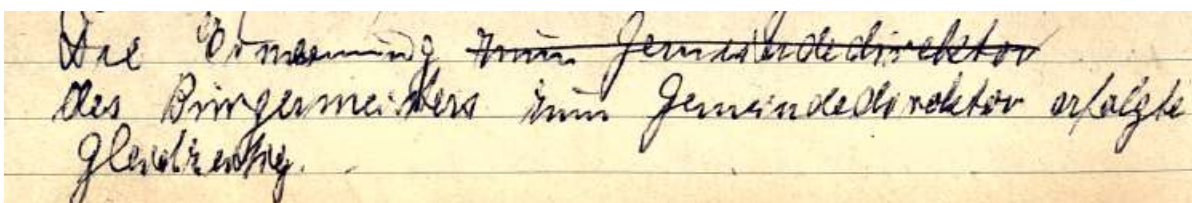 Die Ernennung zum Gemeindedirektor
des Bürgermeisters zum Gemeindedirektor erfolgte
gleichzeitig.